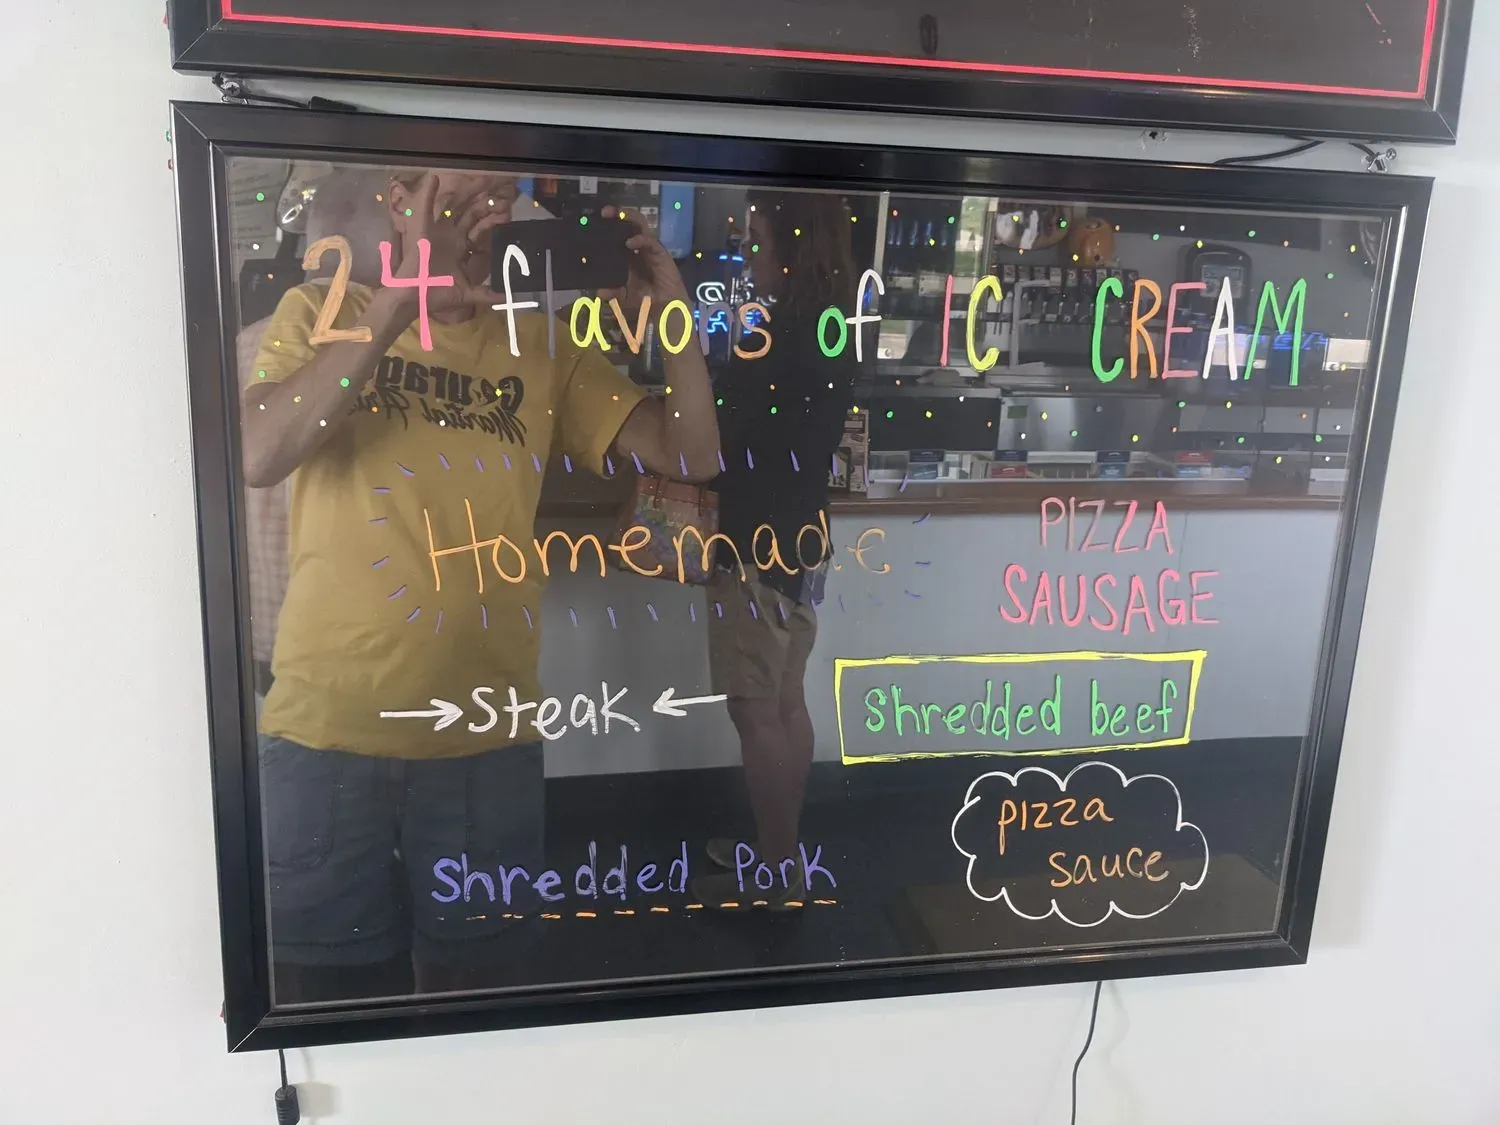 24 flavors of IC CREAM
Homemade
PIZZA
SAUSAGE
→steak←
shredded beef
pizza
sauce
shredded Pork
Courage
Martial Arts